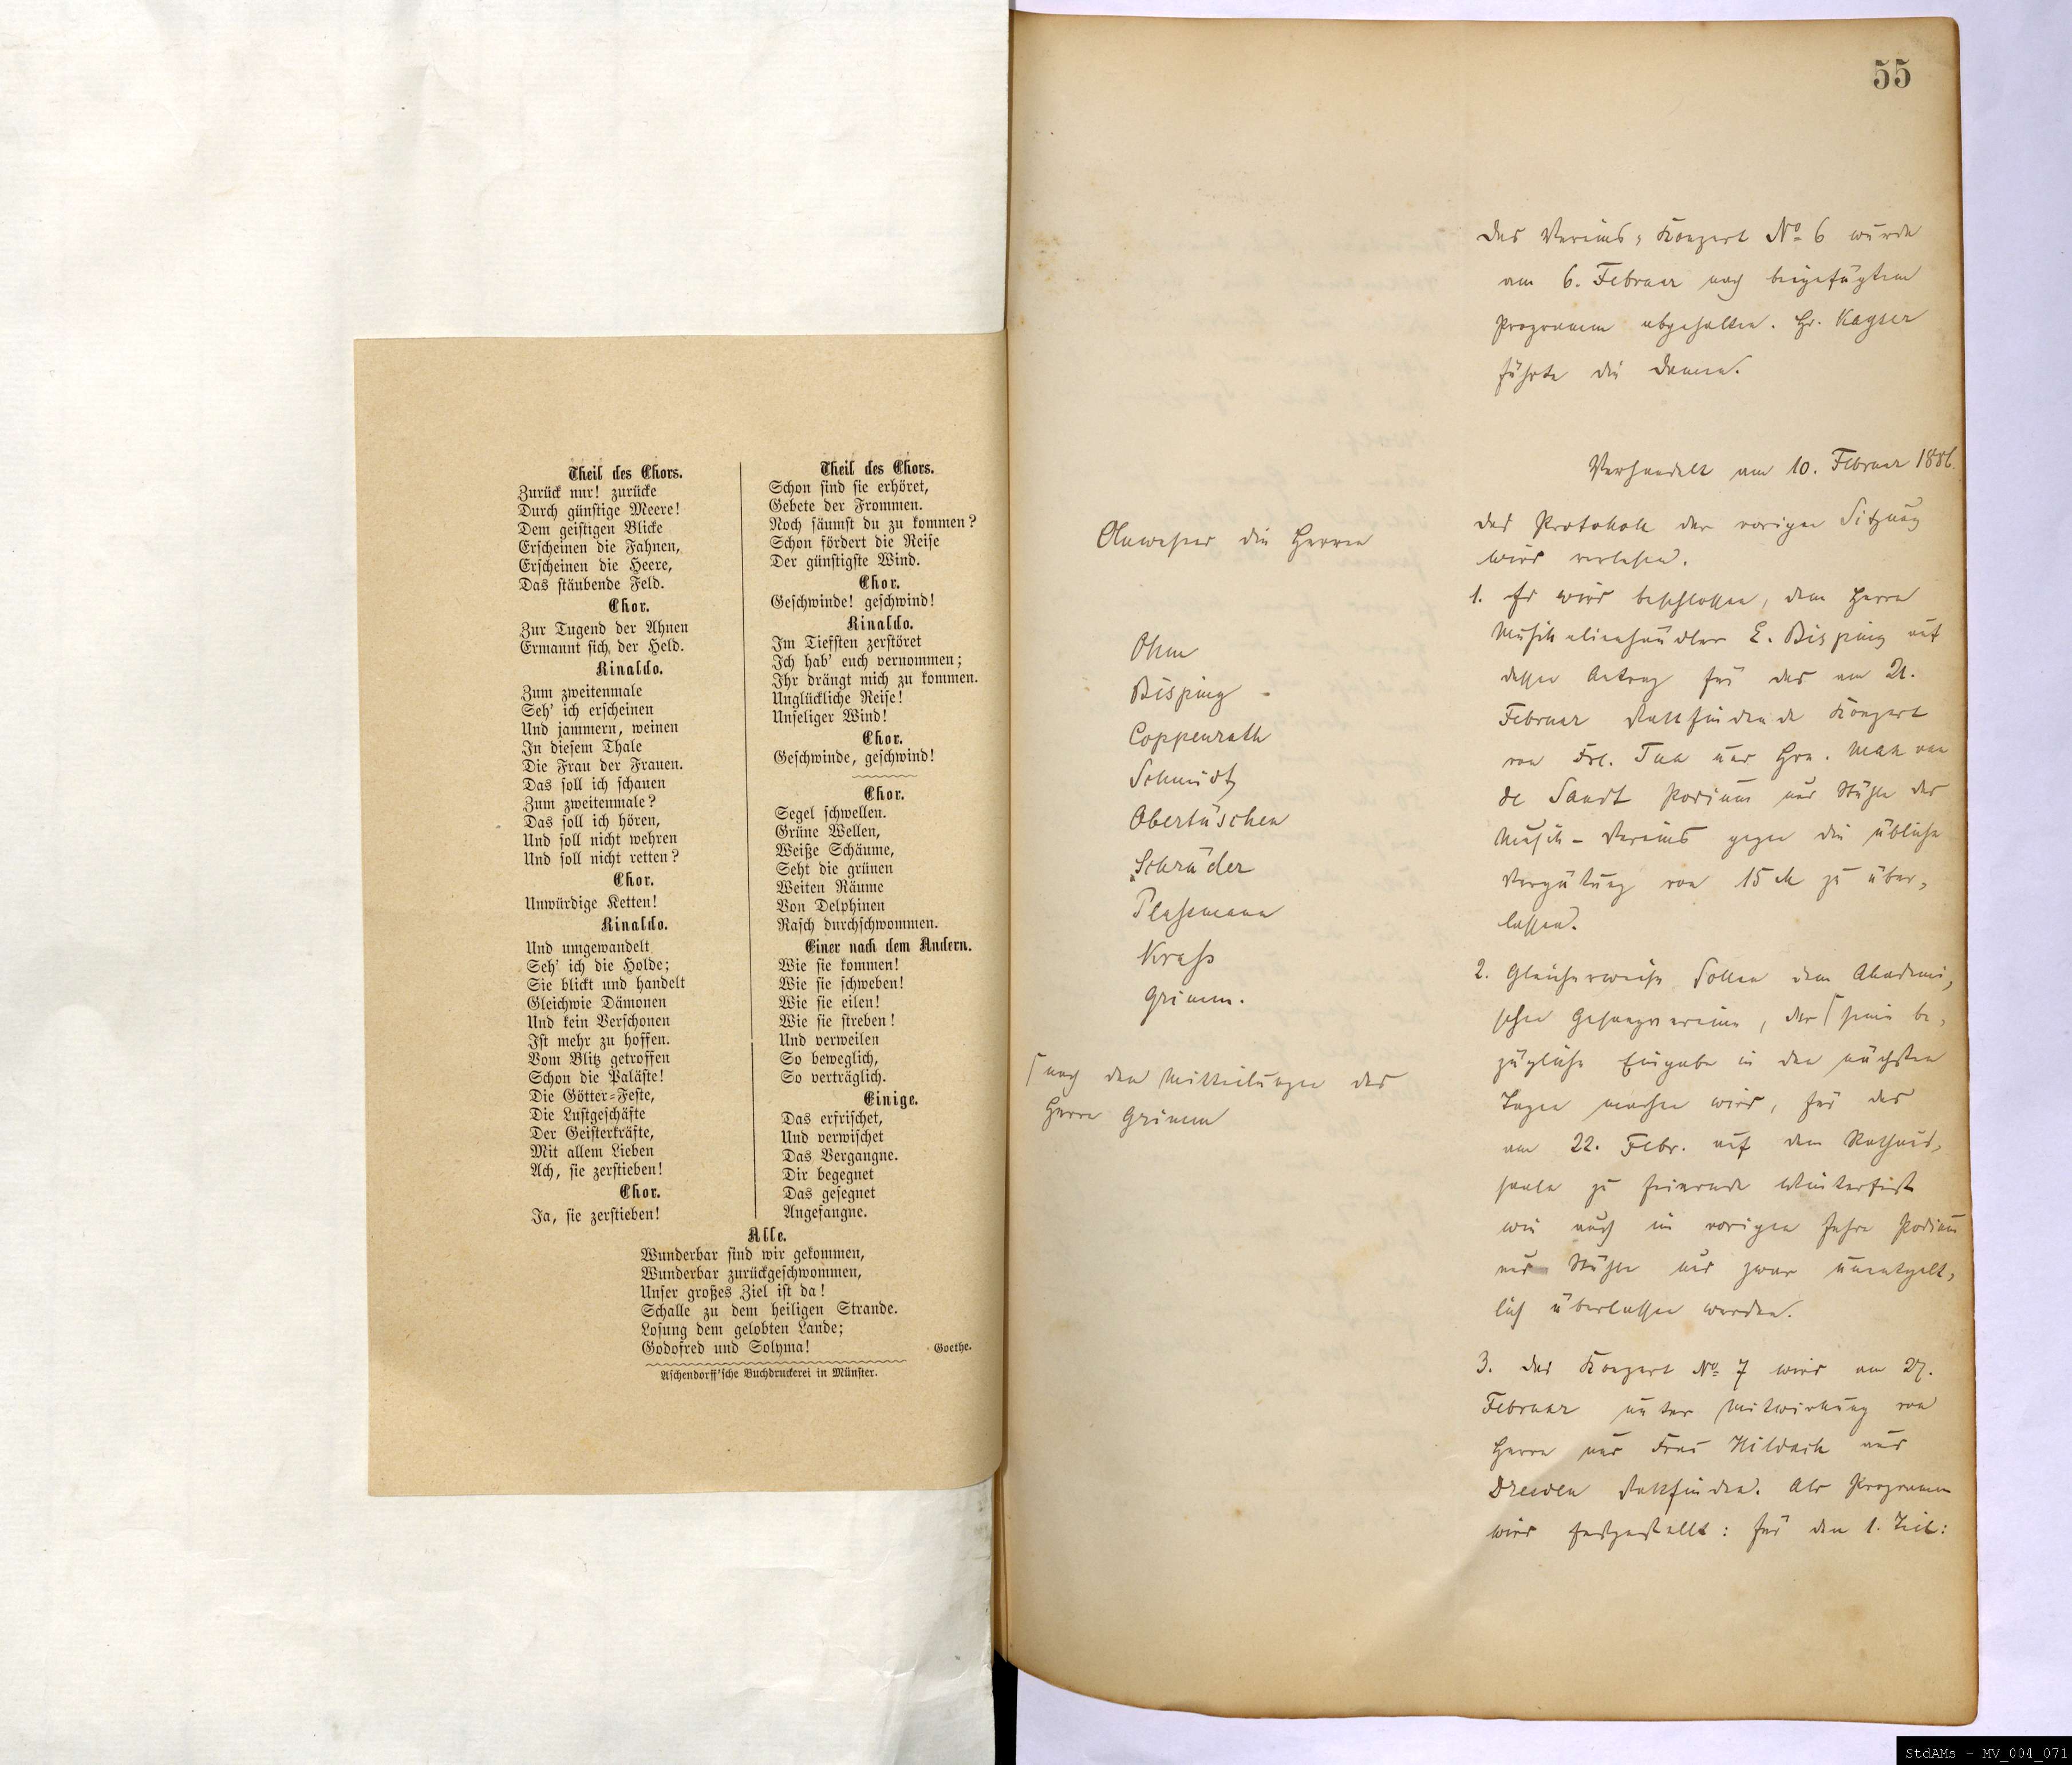 Theil des Chors.
Zurück nur! zurücke
Durch günstige Meere!
Dem geistigen Blicke
Erscheinen die Fahnen,
Erscheinen die Heere,
Das stäubende Feld.
Chor.
Zur Tugend der Ahnen
Ermannt sich der Held.
Rinaldo.
Zum zweitenmale
Seh' ich erscheinen
Und jammern, weinen
In diesem Thale
Die Frau der Frauen.
Das soll ich schauen
Zum zweitenmale?
Das soll ich hören,
Und soll nicht wehren
Und soll nicht retten?
Chor.
Unwürdige Ketten!
Rinaldo.
Und umgewandelt
Seh' ich die Holde;
Sie blickt und handelt
Gleichwie Dämonen
Und kein Verschonen
Ist mehr zu hoffen.
Vom Blitz getroffen
Schon die Paläste!
Die Götter-Feste,
Die Lustgeschäfte
Der Geisterkräfte,
Mit allem Lieben
Ach, sie zerstieben!
Chor.
Ja, sie zerstieben!
Theil des Chors.
Schon sind sie erhöret,
Gebete der Frommen.
Noch säumst du zu kommen?
Schon fördert die Reise
Der günstigste Wind.
Chor.
Geschwinde! geschwind!
Rinaldo.
Im Tiefsten zerstöret
Ich hab' euch vernommen;
Ihr drängt mich zu kommen.
Unglückliche Reise!
Unseliger Wind!
Chor.
Geschwinde, geschwind!
Chor.
Segel schwellen.
Grüne Wellen,
Weiße Schäume,
Seht die grünen
Weiten Räume
Von Delphinen
Rasch durchschwommen.
Einer nach dem Andern.
Wie sie kommen!
Wie sie schweben!
Wie sie eilen!
Wie sie streben!
Und verweilen
So beweglich,
So verträglich.
Einige.
Das erfrischet,
Und verwischet
Das Vergangne.
Dir begegnet
Das gesegnet
Angefangne.
Alle.
Wunderbar sind wir gekommen,
Wunderbar zurückgeschwommen,
Unser großes Ziel ist da!
Schalle zu dem heiligen Strande.
Losung dem gelobten Lande;
Godofred und Solyma!
Goethe.
Aschendorff'sche Buchdruckerei in Münster.
55
Das Vereins-Konzert No 6 wurde
am 6. Februar nach beigefügtem
Programm abgehalten. Hr. Kayser
führte die Damen.
Verhandelt am 10. Februar 1886.
Anwesend die Herren
Ohm
Bisping
Coppenrath
Schmidt
Obertüschen
Schräder
Plassmann
Krass
Grimm.
⌈ nach den Mitteilungen des
Herrn Grimm
Das Protokoll der vorigen Sitzung
wird verlesen.
1. Es wird beschlossen, dem Herrn
Musikalienhändler E. Bisping auf
dessen Antrag für das am 21.
Februar stattfindende Konzert
von Frl. Tua und Hrn. Max van
de Sandt Podium und Stühle des
Musik-Vereins gegen die übliche
Vergütung von 15 M zu über-
lassen.
2. Gleicherweise sollen dem Akademi-
schen Gesangverein, der ⌈ seine be-
zügliche Eingabe in den nächsten
Tagen machen wird, für das
am 22. Febr. auf dem Rathaus-
saale zu feiernde Winterfest
wie auch im vorigen Jahre Podium
und Stühle und zwar unentgelt-
lich überlassen werden.
3. Das Konzert No 7 wird am 27.
Februar unter Mitwirkung von
Herrn und Frau Hildach aus
Dresden stattfinden. Als Programm
wird festgestellt: für den 1. Teil:
StdAMs - MV_004_071